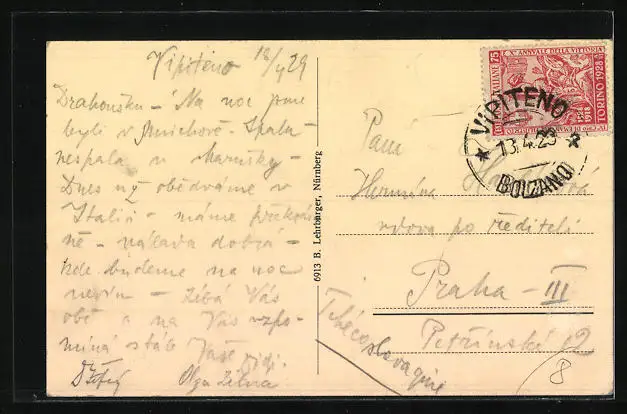 Vipiteno
Drahoušku – Na noc jsme
byli v Mnichově – Spala –
nespala
Dnes už obědváme v
Italii – máme překrás
ně – nálada dobrá –
kde budeme na noc
nevím – líbá Vás
obě a na Vás vzpo
míná stále Vaše
Olga
6913 B. Lehrburger, Nürnberg
75
Xº ANNUALE DELLA VITTORIA
TORINO 1928
VIPITENO
13.4.29
BOLZANO
Paní
Hermína
vdova po řediteli
Praha – III
Petřínská 12
Tchécoslovaquie
8